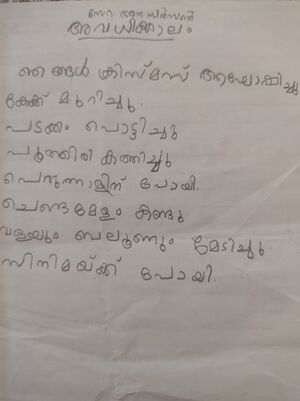 സേറ ആൻ സിർസൺ
അവധിക്കാലം
ഞങ്ങൾ ക്രിസ്മസ് ആഘോഷിച്ചു
കേക്ക് മുറിച്ചു.
പടക്കം പൊട്ടിച്ചു
പൂത്തിരി കത്തിച്ചു
പെരുന്നാളിന് പോയി.
ചെണ്ടമേളം കണ്ടു
വളയും ബലൂണും മേടിച്ചു.
സിനിമയ്ക്ക് പോയി.